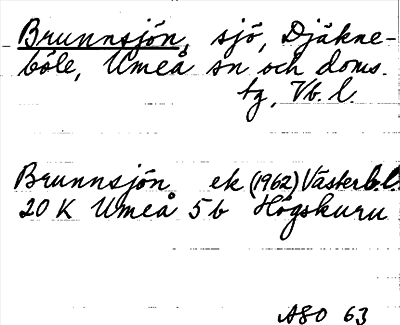 Brunnsjön, sjö, Djäkne-
böle, Umeå sn och doms.
tg, Vb. l.
Brunnsjön ek (1962) Västerb.l.
20 K Umeå 5b Högskuru
ASO 63